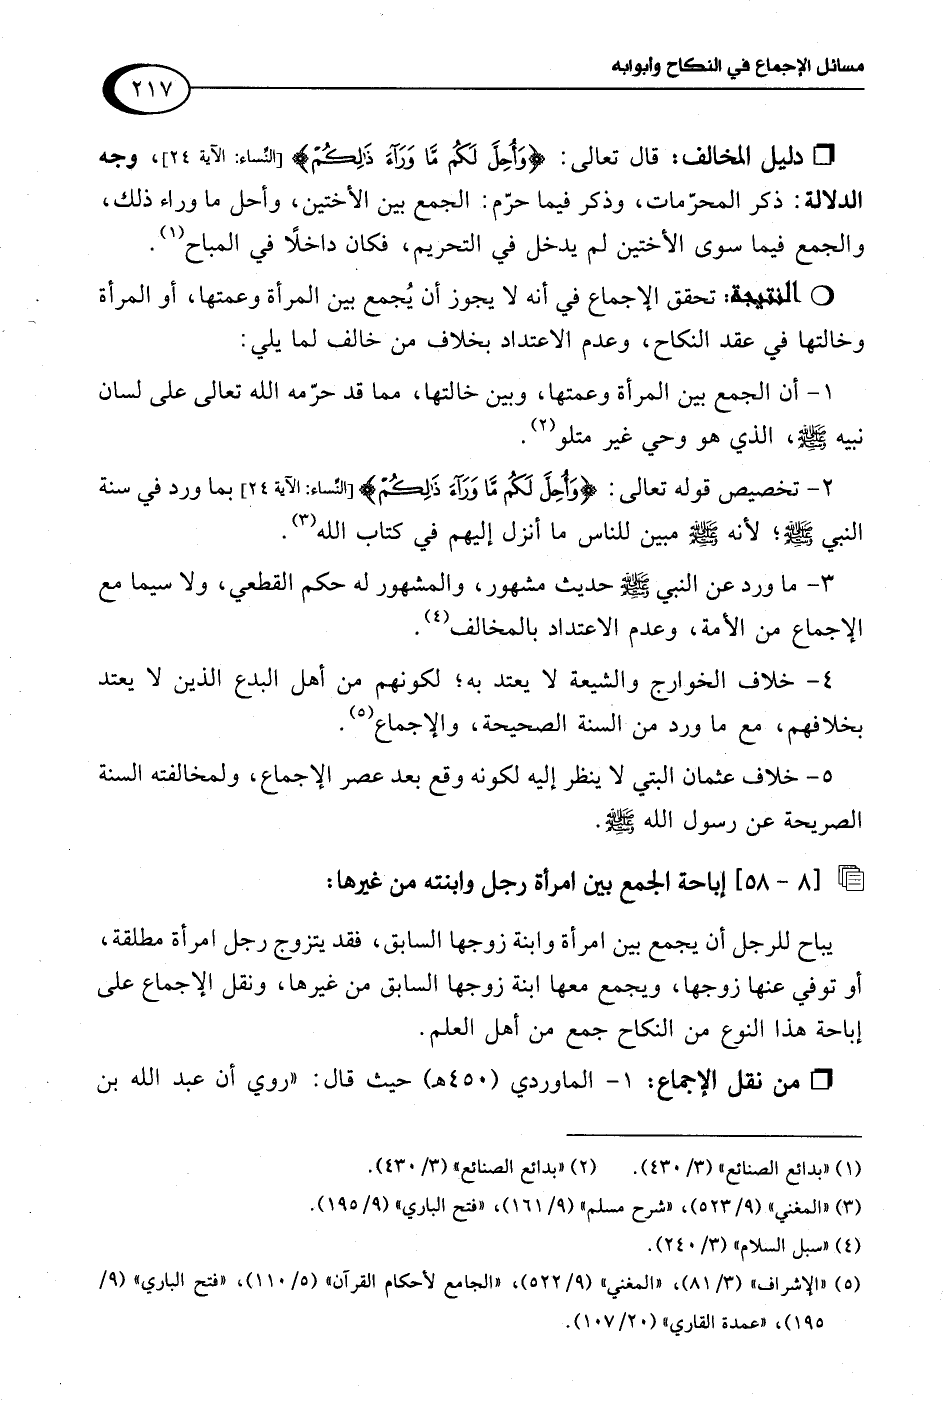 مسائل الإجماع في النكاح وأبوابه
٢١٧
❒ دليل المخالف: قال تعالى: ﴿وَأُحِلَّ لَكُم مَّا وَرَآءَ ذَٰلِكُمْ﴾ [النّساء: الآية ٢٤]، وجه
الدلالة: ذكر المحرّمات، وذكر فيما حرّم: الجمع بين الأختين، وأحل ما وراء ذلك،
والجمع فيما سوى الأختين لم يدخل في التحريم، فكان داخلًا في المباح(١).
❍ النتيجة: تحقق الإجماع في أنه لا يجوز أن يُجمع بين المرأة وعمتها، أو المرأة
وخالتها في عقد النكاح، وعدم الاعتداد بخلاف من خالف لما يلي:
١- أن الجمع بين المرأة وعمتها، وبين خالتها، مما قد حرّمه الله تعالى على لسان
نبيه ﷺ، الذي هو وحي غير متلو(٢).
٢- تخصيص قوله تعالى: ﴿وَأُحِلَّ لَكُم مَّا وَرَآءَ ذَٰلِكُمْ﴾ [النّساء: الآية ٢٤] بما ورد في سنة
النبي ﷺ؛ لأنه ﷺ مبين للناس ما أنزل إليهم في كتاب الله(٣).
٣- ما ورد عن النبي ﷺ حديث مشهور، والمشهور له حكم القطعي، ولا سيما مع
الإجماع من الأمة، وعدم الاعتداد بالمخالف(٤).
٤- خلاف الخوارج والشيعة لا يعتد به؛ لكونهم من أهل البدع الذين لا يعتد
بخلافهم، مع ما ورد من السنة الصحيحة، والإجماع(٥).
٥- خلاف عثمان البتي لا ينظر إليه لكونه وقع بعد عصر الإجماع، ولمخالفته السنة
الصريحة عن رسول الله ﷺ.
[٨ - ٥٨] إباحة الجمع بين امرأة رجل وابنته من غيرها:
يباح للرجل أن يجمع بين امرأة وابنة زوجها السابق، فقد يتزوج رجل امرأة مطلقة،
أو توفي عنها زوجها، ويجمع معها ابنة زوجها السابق من غيرها، ونقل الإجماع على
إباحة هذا النوع من النكاح جمع من أهل العلم.
❒ من نقل الإجماع: ١- الماوردي (٤٥٠هـ) حيث قال: «روي أن عبد الله بن
(١) «بدائع الصنائع» (٣/ ٤٣٠). (٢) «بدائع الصنائع» (٣/ ٤٣٠).
(٣) «المغني» (٩/ ٥٢٣)، «شرح مسلم» (٩/ ١٦١)، «فتح الباري» (٩/ ١٩٥).
(٤) «سبل السلام» (٣/ ٢٤٠).
(٥) «الإشراف» (٣/ ٨١)، «المغني» (٩/ ٥٢٢)، «الجامع لأحكام القرآن» (٥/ ١١٠)، «فتح الباري» (٩/
١٩٥)، «عمدة القاري» (٢٠/ ١٠٧).